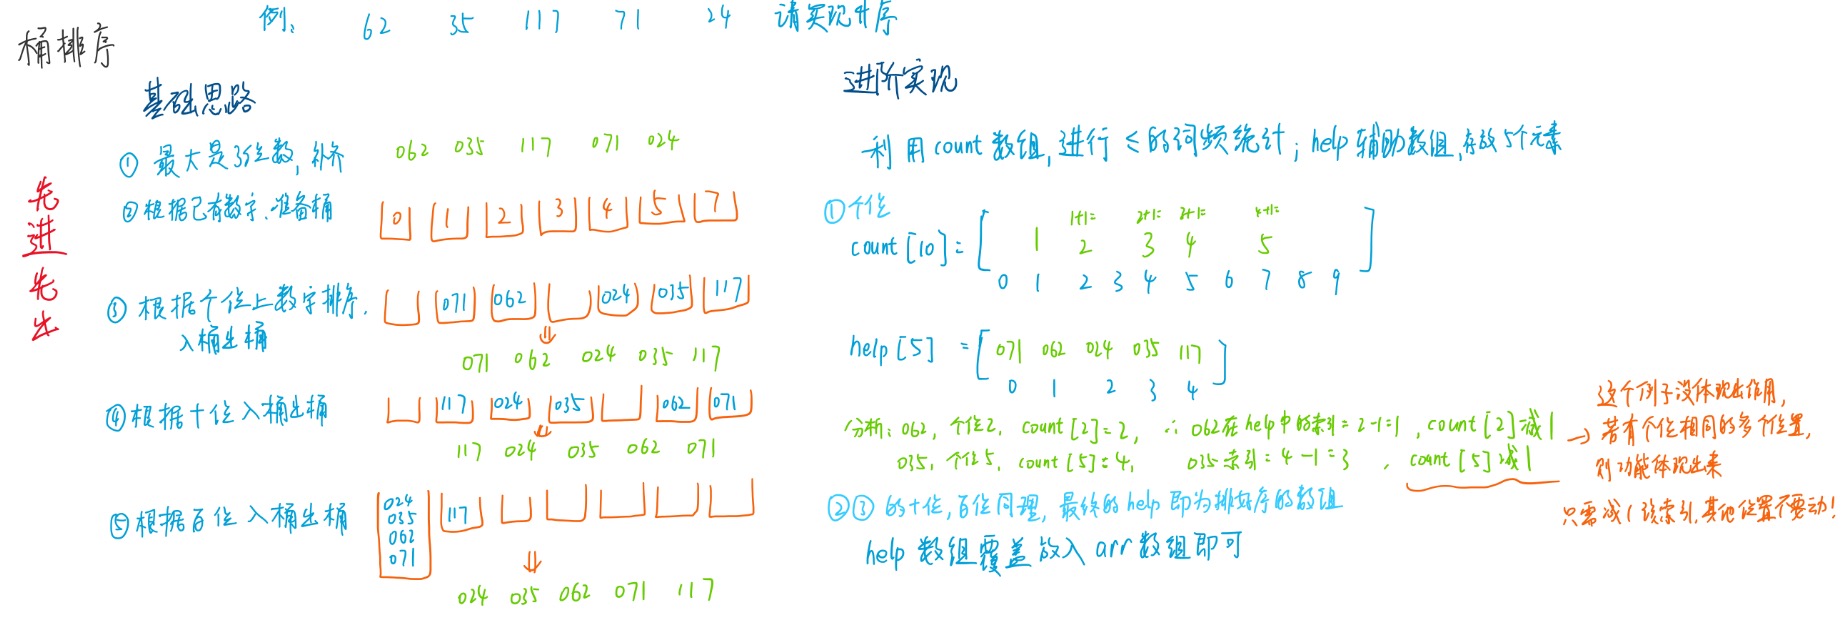 桶排序
例: 62 35 117 71 24 请实现升序
先进先出
基础思路
① 最大是3位数, 补齐 062 035 117 071 024
②根据已有数字、准备桶 0 1 2 3 4 5 7
③ 根据个位上数字排序. 071 062 024 035 117
入桶出桶
071 062 024 035 117
④根据十位入桶出桶 117 024 035 062 071
117 024 035 062 071
⑤根据百位入桶出桶 024 035 062 071 117
024 035 062 071 117
进阶实现
利用count数组,进行≤的词频统计; help辅助数组,存放5个元素
①个位
1+1= 2+1= 3+1= 4+1=
count[10]= [ 1 2 3 4 5 ]
0 1 2 3 4 5 6 7 8 9
help[5] = [ 071 062 024 035 117 ]
0 1 2 3 4
分析: 062, 个位2, count[2]=2, ∴ 062在help中的索引=2-1=1, count[2]减1
035, 个位5, count[5]=4, 035索引=4-1=3, count[5]减1
→ 这个例子没体现出作用,
若有个位相同的多个位置,
则功能体现出来
只需减1该索引,其他位置不要动!
②③的十位,百位同理, 最终的help即为排好序的数组
help数组覆盖放入arr数组即可